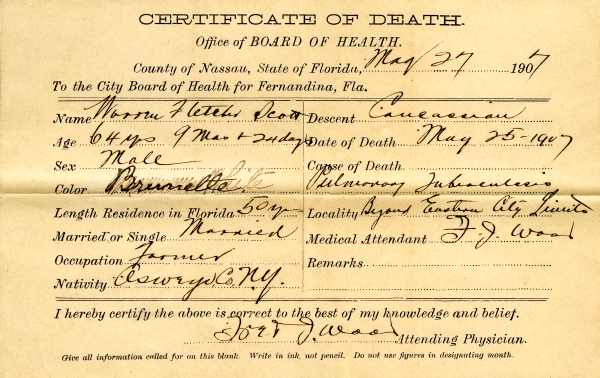 CERTIFICATE OF DEATH.
Office of BOARD OF HEALTH.
County of Nassau, State of Florida, May 27 1907
To the City Board of Health for Fernandina, Fla.
Name Warren Fletcher Scott Descent Caucassian
Age 64 yrs 9 Mos + 24 days Date of Death May 25-1907
Sex Male Cause of Death
Color Brunette White Pulmonary Tuberculosis
Length Residence in Florida 50 yr Locality Beyond Eastern City Limits
Married or Single Married Medical Attendant F. J. Wood
Occupation Farmer Remarks
Nativity Oswego Co. N.Y.
I hereby certify the above is correct to the best of my knowledge and belief.
J. Wood Attending Physician.
Give all information called for on this blank. Write in ink, not pencil. Do not use figures in designating month.